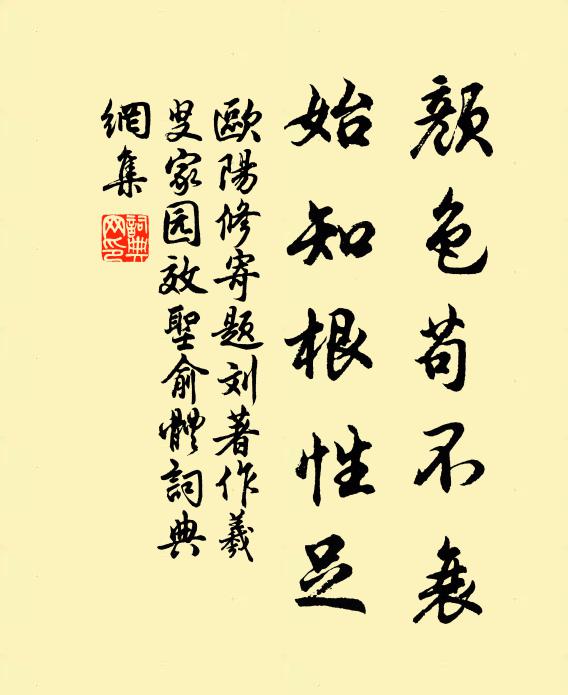 顏色苟不衰
始知根性足
歐陽修寄題刘著作羲
叟家园效聖俞體詞典
網集
詞典
网印